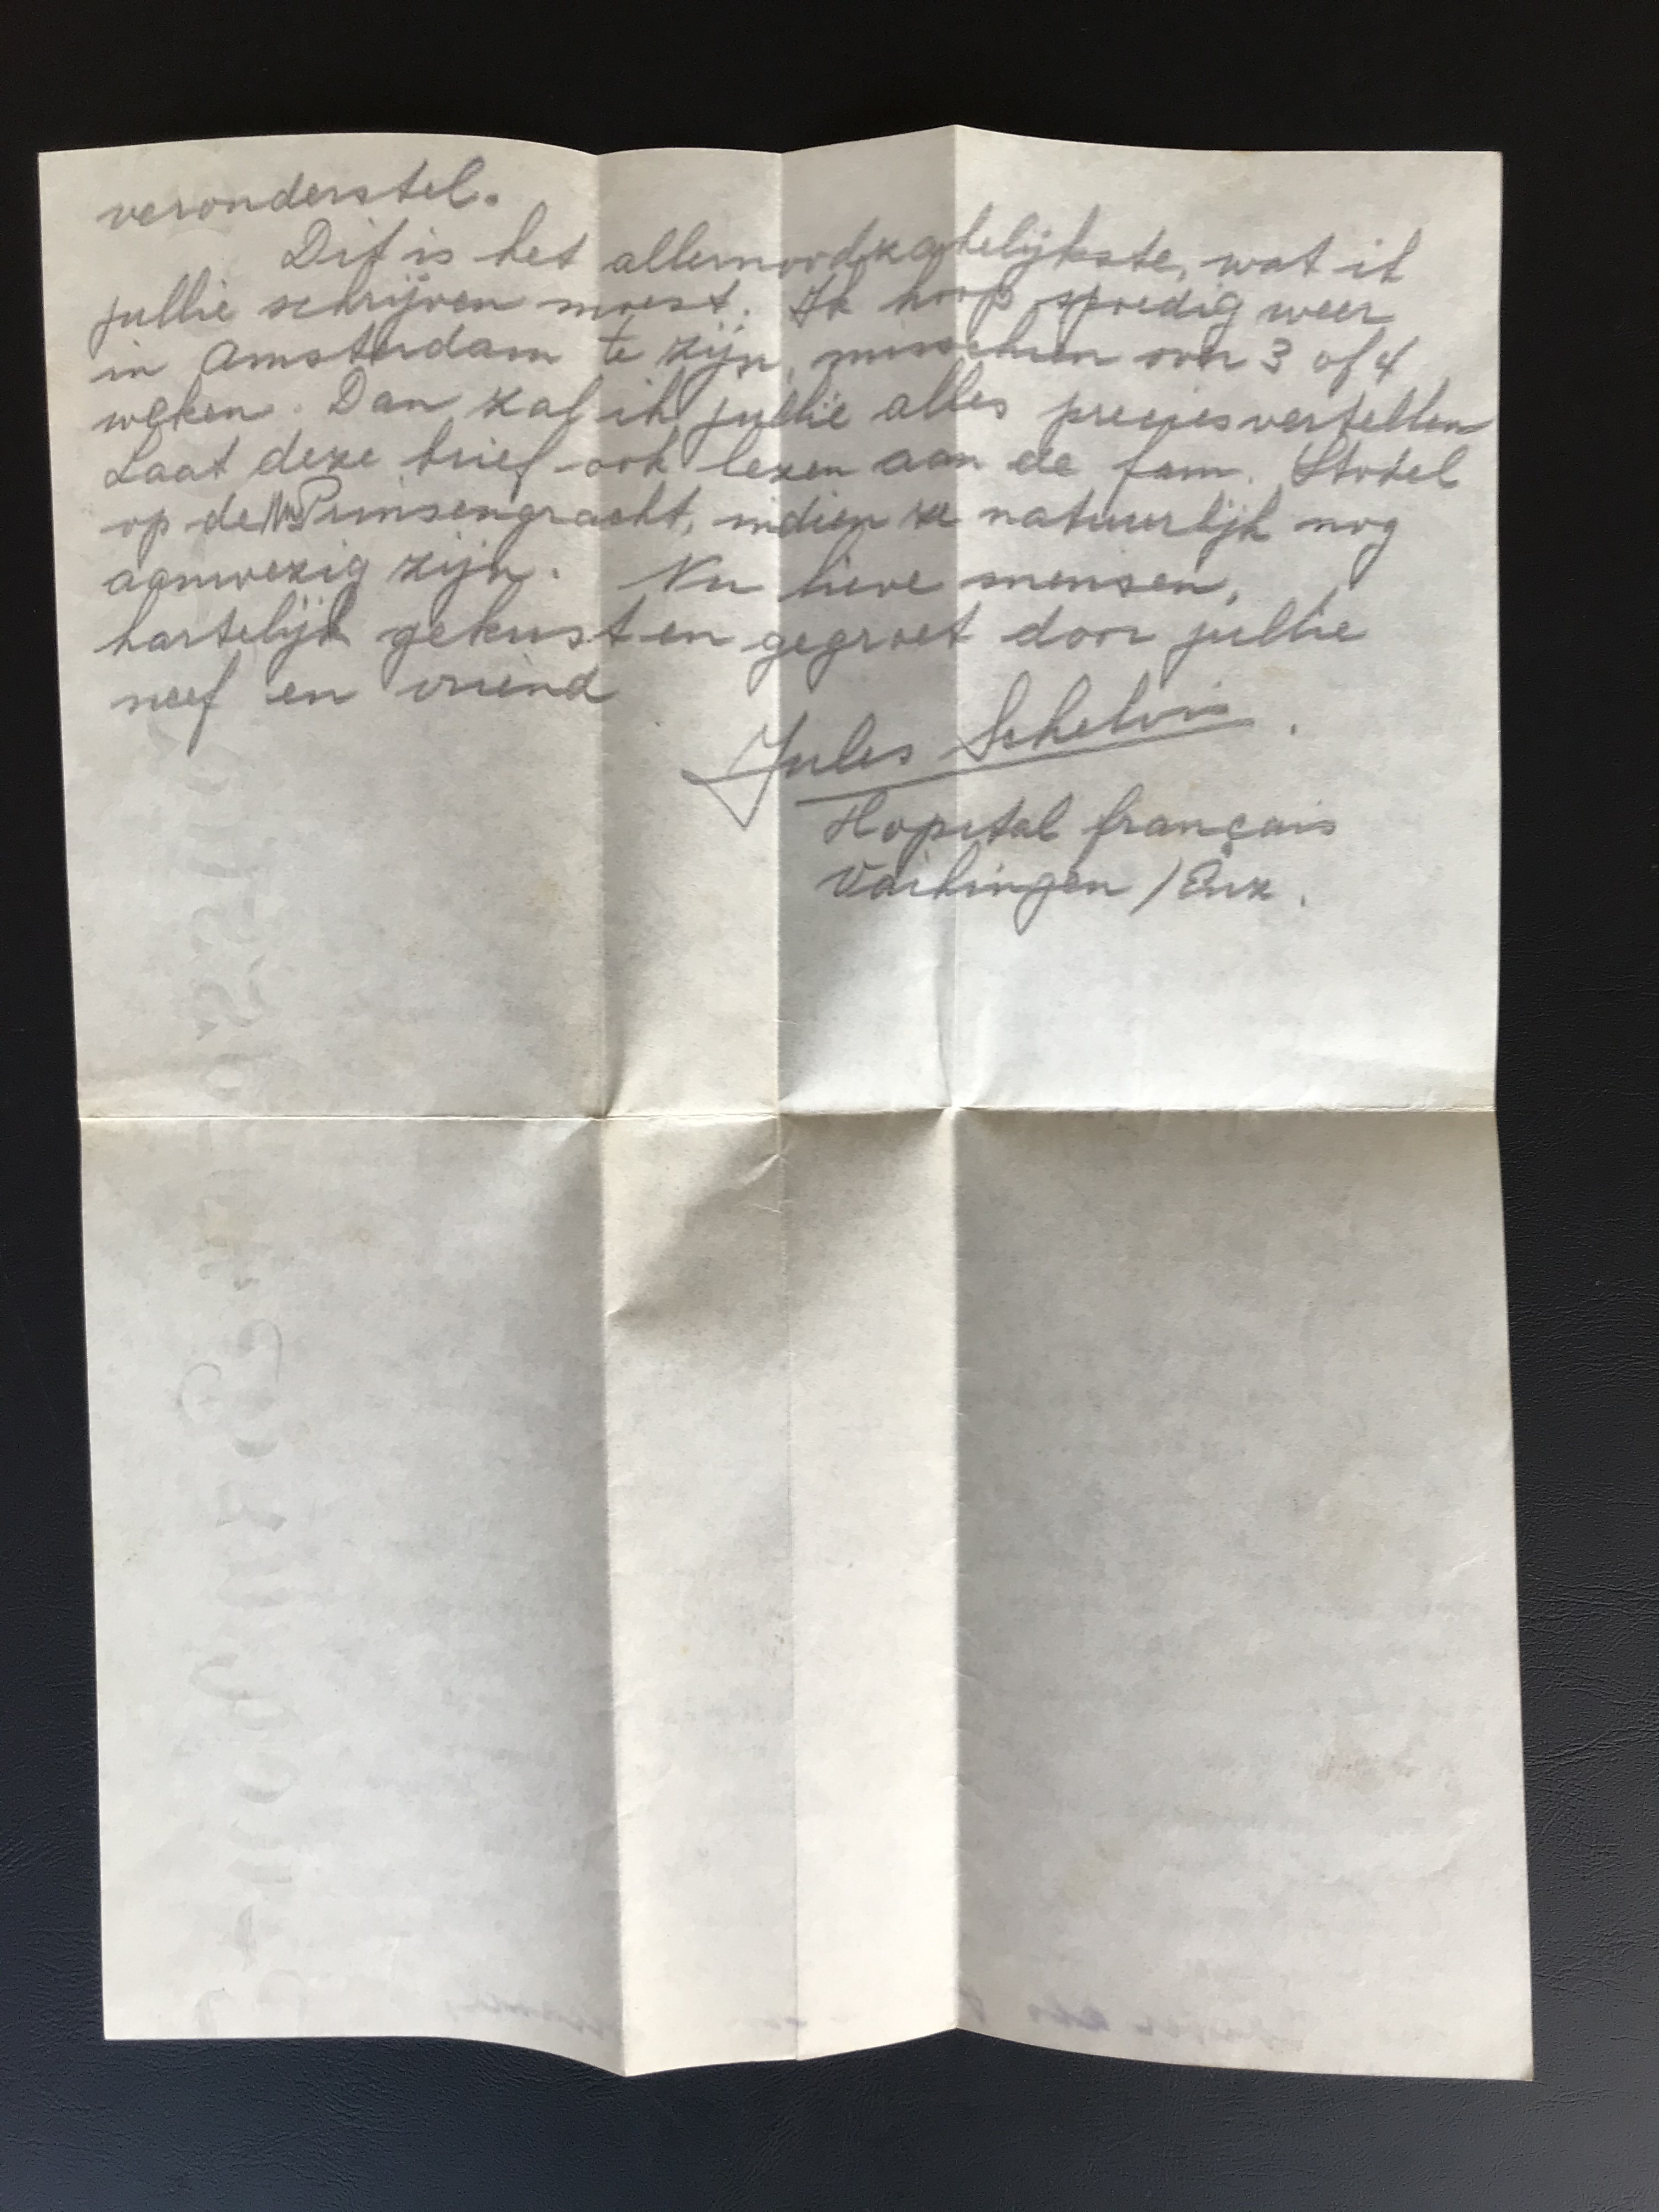 veronderstel.
Dit is het allernoodzakelijkste, wat ik
jullie schrijven moest. Ik hoop spoedig weer
in Amsterdam te zijn, misschien over 3 of 4
weken. Dan zal ik jullie alles precies vertellen
Laat deze brief ook lezen aan de fam. Stodel
op de Nw Prinsengracht, indien ze natuurlijk nog
aanwezig zijn. Nu lieve mensen,
hartelijk gekust en gegroet door jullie
neef en vriend
Jules Schelvis.
Hopital français
Vaihingen / Enz.